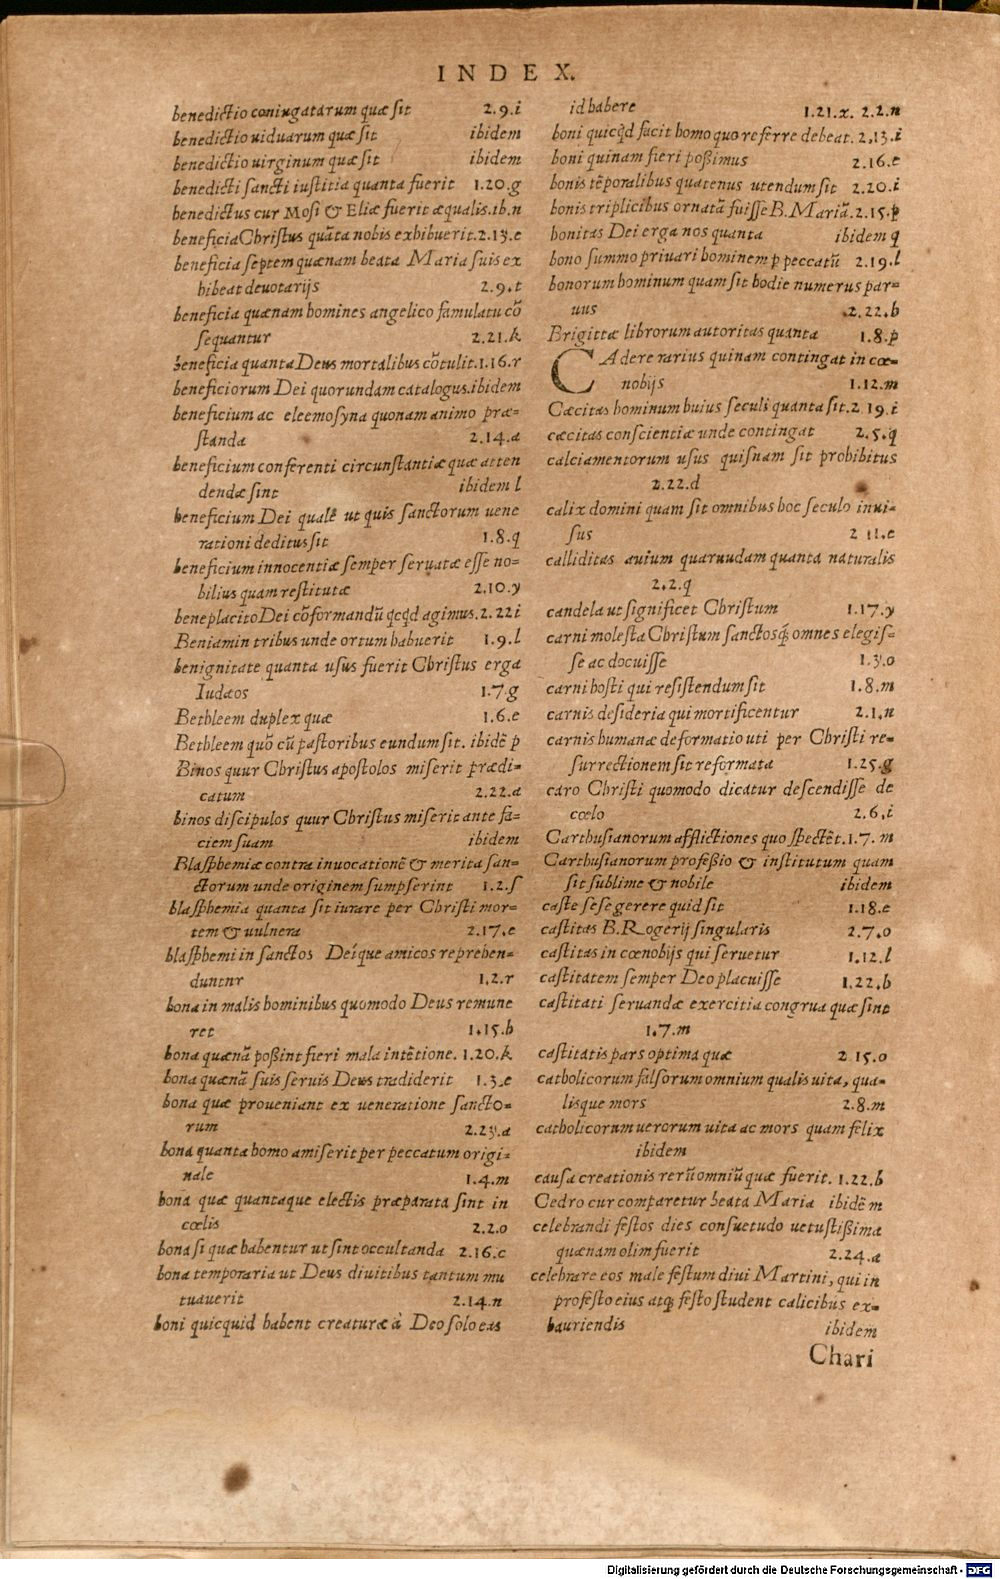 INDEX.
benedictio coniugatarum quæ sit 2.9.i
benedictio uiduarum quæ sit ibidem
benedictio uirginum quæ sit ibidem
benedicti sancti iustitia quanta fuerit 1.20.g
benedictus cur Mosi & Eliæ fuerit æqualis.ib.n
beneficia Christus quāta nobis exhibuerit.2.13.e
beneficia septem quænam beata Maria suis ex
hibeat deuotarijs 2.9.t
beneficia quænam homines angelico famulatu cō
sequantur 2.21.k
beneficia quanta Deus mortalibus cōtulit.1.16.r
beneficiorum Dei quorundam catalogus.ibidem
beneficium ac eleemosyna quonam animo præ=
standa 2.14.a
beneficium conferenti circunstantiæ quæ atten
dendæ sint ibidem l
beneficium Dei qualē ut quis sanctorum uene
rationi deditus sit 1.8.q
beneficium innocentiæ semper seruatæ esse no=
bilius quam restitutæ 2.10.y
beneplacito Dei cōformandū qcqd agimus.2.22i
Beniamin tribus unde ortum habuerit 1.9.l
benignitate quanta usus fuerit Christus erga
Iudæos 1.7.g
Bethleem duplex quæ 1.6.e
Bethleem quō cū pastoribus eundum sit. ibidē p
Binos quur Christus apostolos miserit prædi=
catum 2.22.a
binos discipulos quur Christus miserit ante fa=
ciem suam ibidem
Blasphemiæ contra inuocationē & merita san=
ctorum unde originem sumpserint 1.2.s
blasphemia quanta sit iurare per Christi mor=
tem & uulnera 2.17.e
blasphemi in sanctos Deíque amicos reprehen=
duntnr 1.2.r
bona in malis hominibus quomodo Deus remune
ret 1.15.b
bona quænā poßint fieri mala intētione. 1.20.k
bona quænā suis seruis Deus tradiderit 1.3.e
bona quæ proueniant ex ueneratione sancto=
rum 2.23.a
bona quanta homo amiserit per peccatum origi=
nale 1.4.m
bona quæ quantaque electis præparata sint in
cœlis 2.2.o
bona si quæ habentur ut sint occultanda 2.16.c
bona temporaria ut Deus diuitibus tantum mu
tuauerit 2.14.n
boni quicquid habent creaturæ à Deo solo eas
id habere 1.21.x. 2.2.n
boni quicqd facit homo quo referre debeat. 2.13.i
boni quinam fieri poßimus 2.16.e
bonis tēporalibus quatenus utendum sit 2.20.i
bonis triplicibus ornatā fuisse B.Mariā.2.15.p
bonitas Dei erga nos quanta ibidem q
bono summo priuari hominem p peccatū 2.19.l
bonorum hominum quam sit hodie numerus par=
uus 2.22.b
Brigittæ librorum autoritas quanta 1.8.p
CAdere rarius quinam contingat in cœ=
nobijs 1.12.m
Cæcitas hominum huius seculi quanta sit.2 19.i
cæcitas conscientiæ unde contingat 2.5.q
calciamentorum usus quisnam sit prohibitus
2.22.d
calix domini quam sit omnibus hoc seculo inui=
sus 2 11.e
calliditas auium quaruudam quanta naturalis
2.2.q
candela ut significet Christum 1.17.y
carni molesta Christum sanctosq́; omnes elegis=
se ac docuisse 1.3.o
carni hosti qui resistendum sit 1.8.m
carnis desideria qui mortificentur 2.1.n
carnis humanæ deformatio uti per Christi re=
surrectionem sit reformata 1.25.g
caro Christi quomodo dicatur descendisse de
cœlo 2.6.i
Carthusianorum afflictiones quo spectēt.1.7.m
Carthusianorum profeßio & institutum quam
sit sublime & nobile ibidem
caste sese gerere quid sit 1.18.e
castitas B.Rogerij singularis 2.7.o
castitas in cœnobijs qui seruetur 1.12.l
castitatem semper Deo placuisse 1.22.b
castitati seruandæ exercitia congrua quæ sint
1.7.m
castitatis pars optima quæ 2 15.o
catholicorum falsorum omnium qualis uita, qua=
lisque mors 2.8.m
catholicorum uerorum uita ac mors quam felix
ibidem
causa creationis rerū omniū quæ fuerit. 1.22.b
Cedro cur comparetur beata Maria ibidē m
celebrandi festos dies consuetudo uetustißima
quænam olim fuerit 2.24.a
celebrare eos male festum diui Martini, qui in
profesto eius atq; festo student calicibus ex=
hauriendis ibidem
Chari
Digitalisierung gefördert durch die Deutsche Forschungsgemeinschaft - DFG